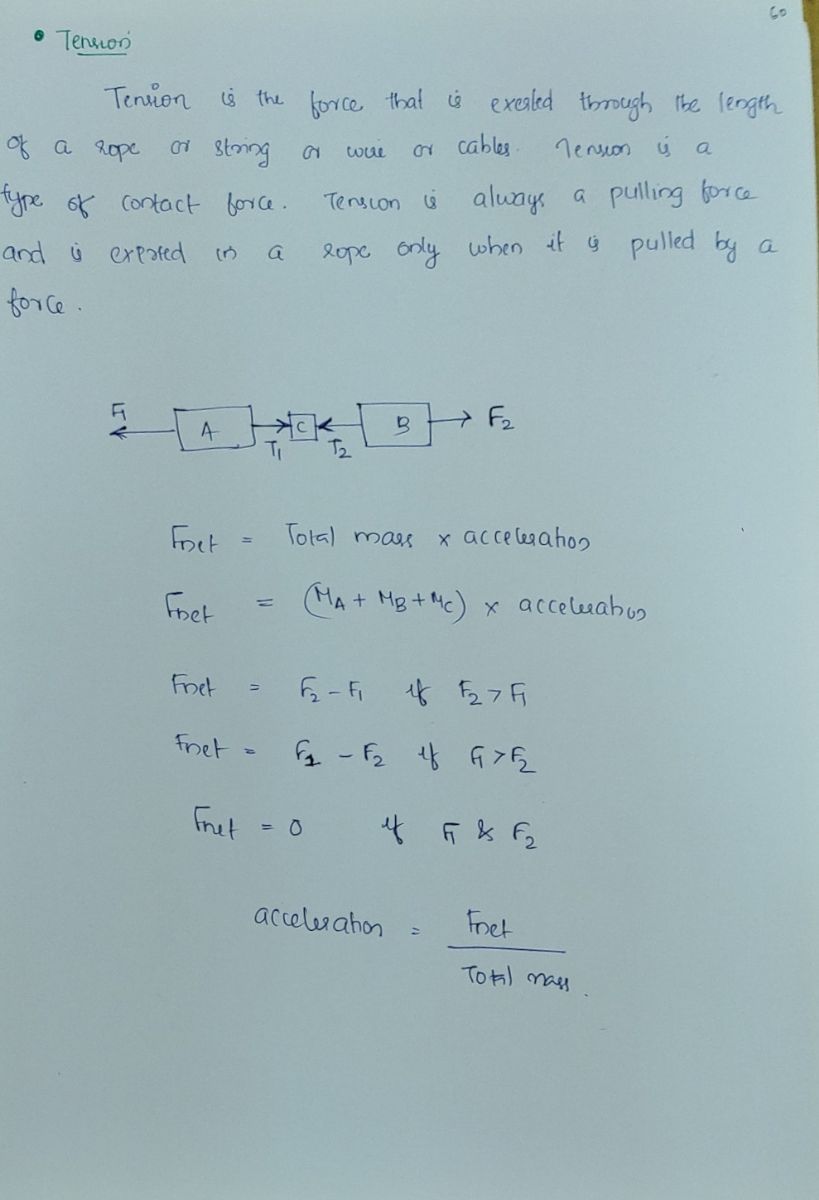 60
• Tension
Tension is the force that is exerted through the length
of a rope or string or wire or cables. Tension is a
type of contact force. Tension is always a pulling force
and is exerted in a rope only when it is pulled by a
force.
F1 A T1 C T2 B F2
Fnet = Total mass x acceleration
Fnet = (MA + MB + MC) x acceleration
Fnet = F2 - F1 if F2 > F1
Fnet = F1 - F2 if F1 > F2
Fnet = 0 if F1 & F2
acceleration = Fnet
Total mass.